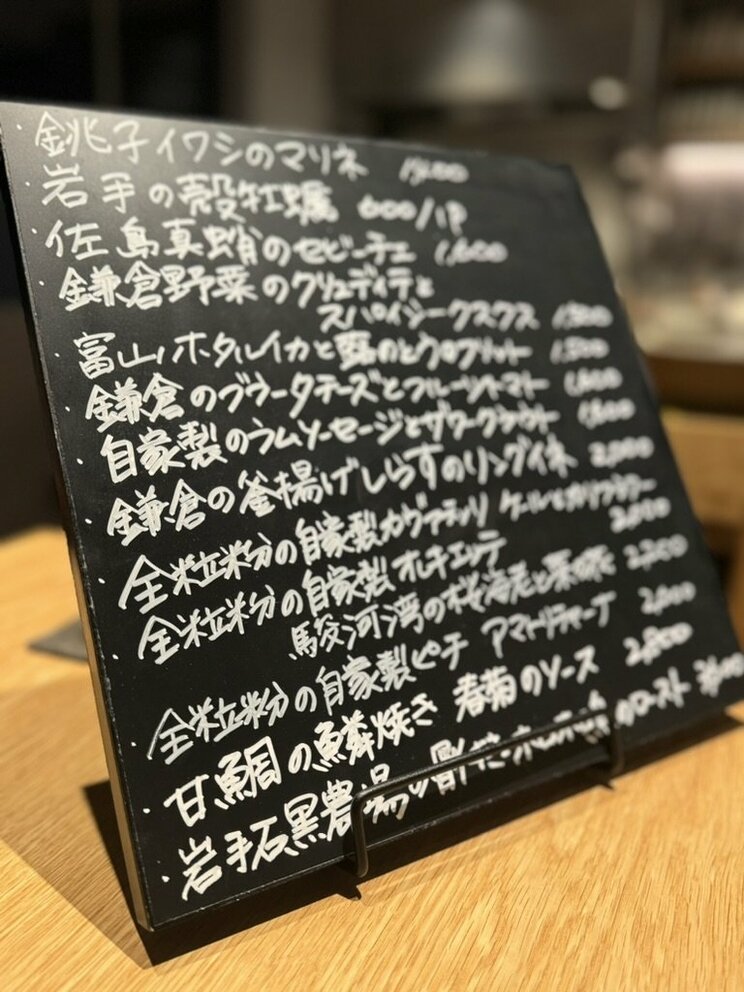 ・銚子イワシのマリネ
・岩手の殻牡蠣 600/1P
・佐島真蛸のセビーチェ 1,600
・鎌倉野菜のクリュディテと
スパイシークスクス
・富山ホタルイカと のとクロケット 1,500
・鎌倉のブラータチーズとフルーツトマト 1,800
・自家製のラムソーセージとザワークラウト
・鎌倉の釜揚げしらすのリングイネ 2,000
・全粒粉の自家製カヴァテッリ ケールとカリフラワー
・全粒粉の自家製オレキエッテ
駿河湾の桜海老と菜の花 2,200
・全粒粉の自家製ピチ アマトリチャーナ
・甘鯛の鱗焼き 春菊のソース 2,800
・岩手石黒農場の のロースト